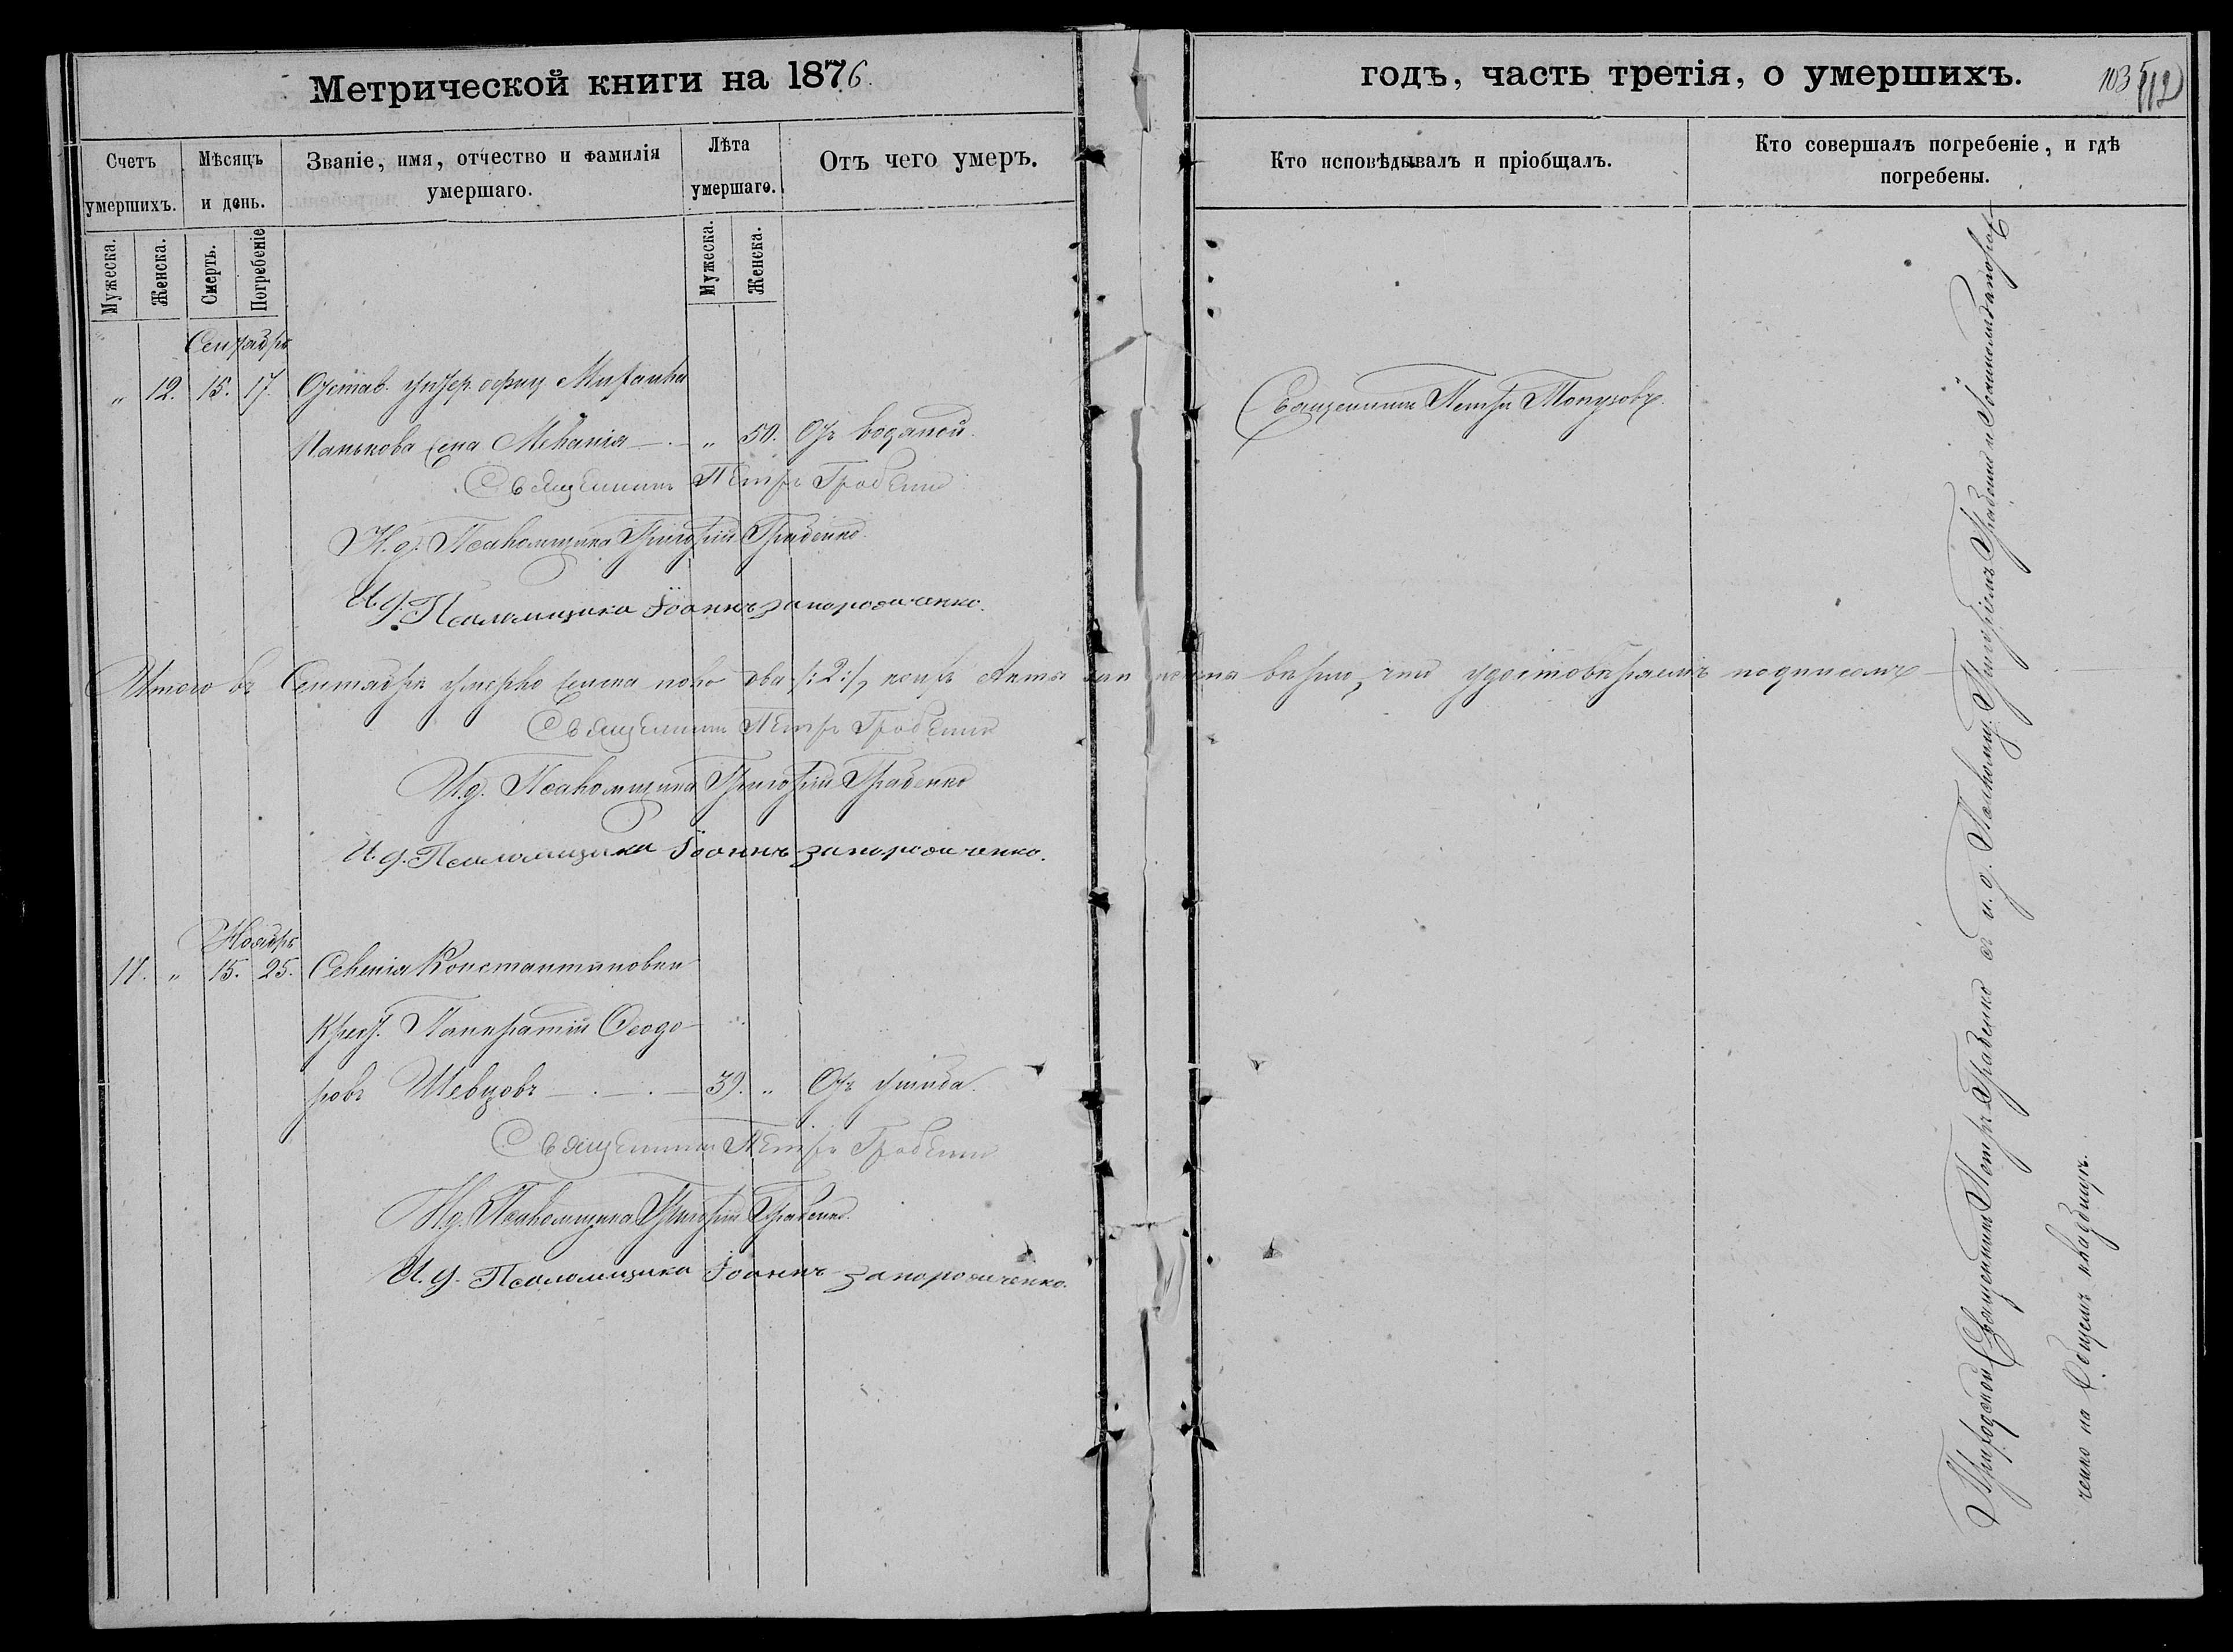 Метрической книги на 1876
годъ, часть третія, о умершихъ.
103
112
Счетъ умершихъ.
Мѣсяцъ и день.
Званіе, имя, отчество и фамилія умершаго.
Лѣта умершаго.
Отъ чего умеръ.
Кто исповѣдывалъ и пріобщалъ.
Кто совершалъ погребеніе, и гдѣ погребены.
Мужеска.
Женска.
Смерть.
Погребеніе
Мужеска.
Женска.
Сентябрь
„ 12. 15. 17. Отстав. унтер. офиц
Панькова жена Меланія „ 50. Отъ водяной.
Священникъ Петръ
Священникъ Петръ Грабенко
И. д. Псаломщика Григорій Грабенко.
И. д. Псаломщика Іоаннъ Запорожченко.
Итого въ Сентябрѣ умерло женска пола два /:2:/, акты записаны вѣрно, что удостовѣряемъ подписомъ
Священникъ Петръ Грабенко
И. д. Псаломщика Григорій Грабенко
И. д. Псаломщика Іоаннъ Запорожченко.
Ноябрь
11. „ 15. 25. Константиновки
Крест. Панкратій Ѳеодо-
ровъ Шевцовъ 39. „ Отъ ушиба.
Священникъ Петръ Грабенко
И. д. Псаломщика Григорій Грабенко.
И. д. Псаломщика Іоаннъ Запорожченко.
Приходской Священникъ Петръ Грабенко съ и. д. Псаломщ. Григоріемъ Грабенко и Іоанномъ Запорож-
ченко на общемъ кладбищѣ.